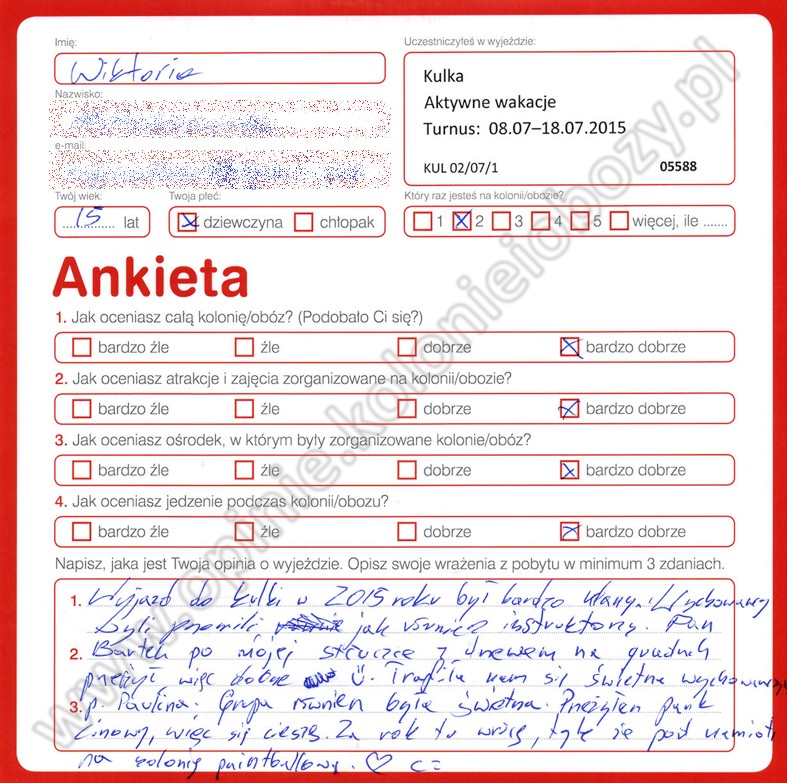 Imię:
Wiktoria
Uczestniczyłeś w wyjeździe:
Kulka
Aktywne wakacje
Turnus: 08.07–18.07.2015
KUL 02/07/1 05588
Nazwisko:
e-mail:
Twój wiek:
15 lat
Twoja płeć:
dziewczyna chłopak
Który raz jesteś na kolonii/obozie?
1 2 3 4 5 więcej, ile .......
Ankieta
1. Jak oceniasz całą kolonię/obóz? (Podobało Ci się?)
bardzo źle źle dobrze bardzo dobrze
2. Jak oceniasz atrakcje i zajęcia zorganizowane na kolonii/obozie?
bardzo źle źle dobrze bardzo dobrze
3. Jak oceniasz ośrodek, w którym były zorganizowane kolonie/obóz?
bardzo źle źle dobrze bardzo dobrze
4. Jak oceniasz jedzenie podczas kolonii/obozu?
bardzo źle źle dobrze bardzo dobrze
Napisz, jaka jest Twoja opinia o wyjeździe. Opisz swoje wrażenia z pobytu w minimum 3 zdaniach.
1. Wyjazd do Kulki w 2015 roku był bardzo udany. Wychowawcy
byli jak również instruktorzy. Pan
2. Bartek po mojej stłuczce z drzewem na quadach
przeżył więc dobrze Trafiła nam się świetna wychowawczyni
3. p. Paulina. Grupa również była świetna. Przeżyłam park
linowy, więc się cieszę. Za rok tu wrócę, tyle że pod namioty
na kolonię paintballową. ♡ c=
www.opinie.kolonieiobozy.pl